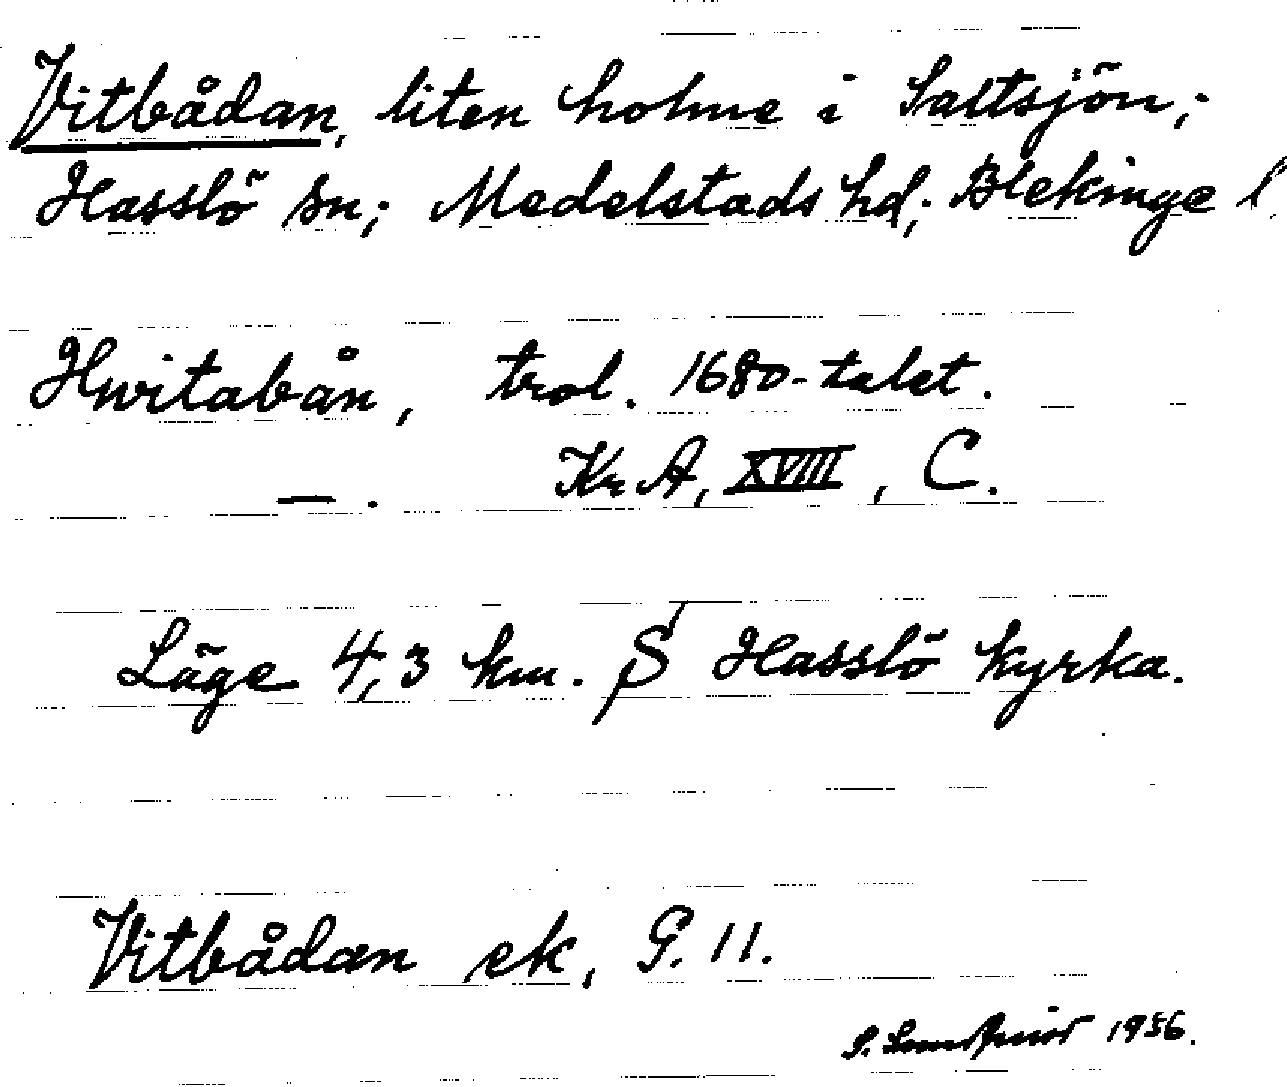 Vitbådan, liten holme i Saltsjön;
Hasslö sn; Medelstads hd; Blekinge l
Hwitabån, trol. 1680-talet.
—. Kr A, XVIII, C.
Läge 4,3 km. S Hasslö kyrka.
Vitbådan ek, G. 11.
1956.